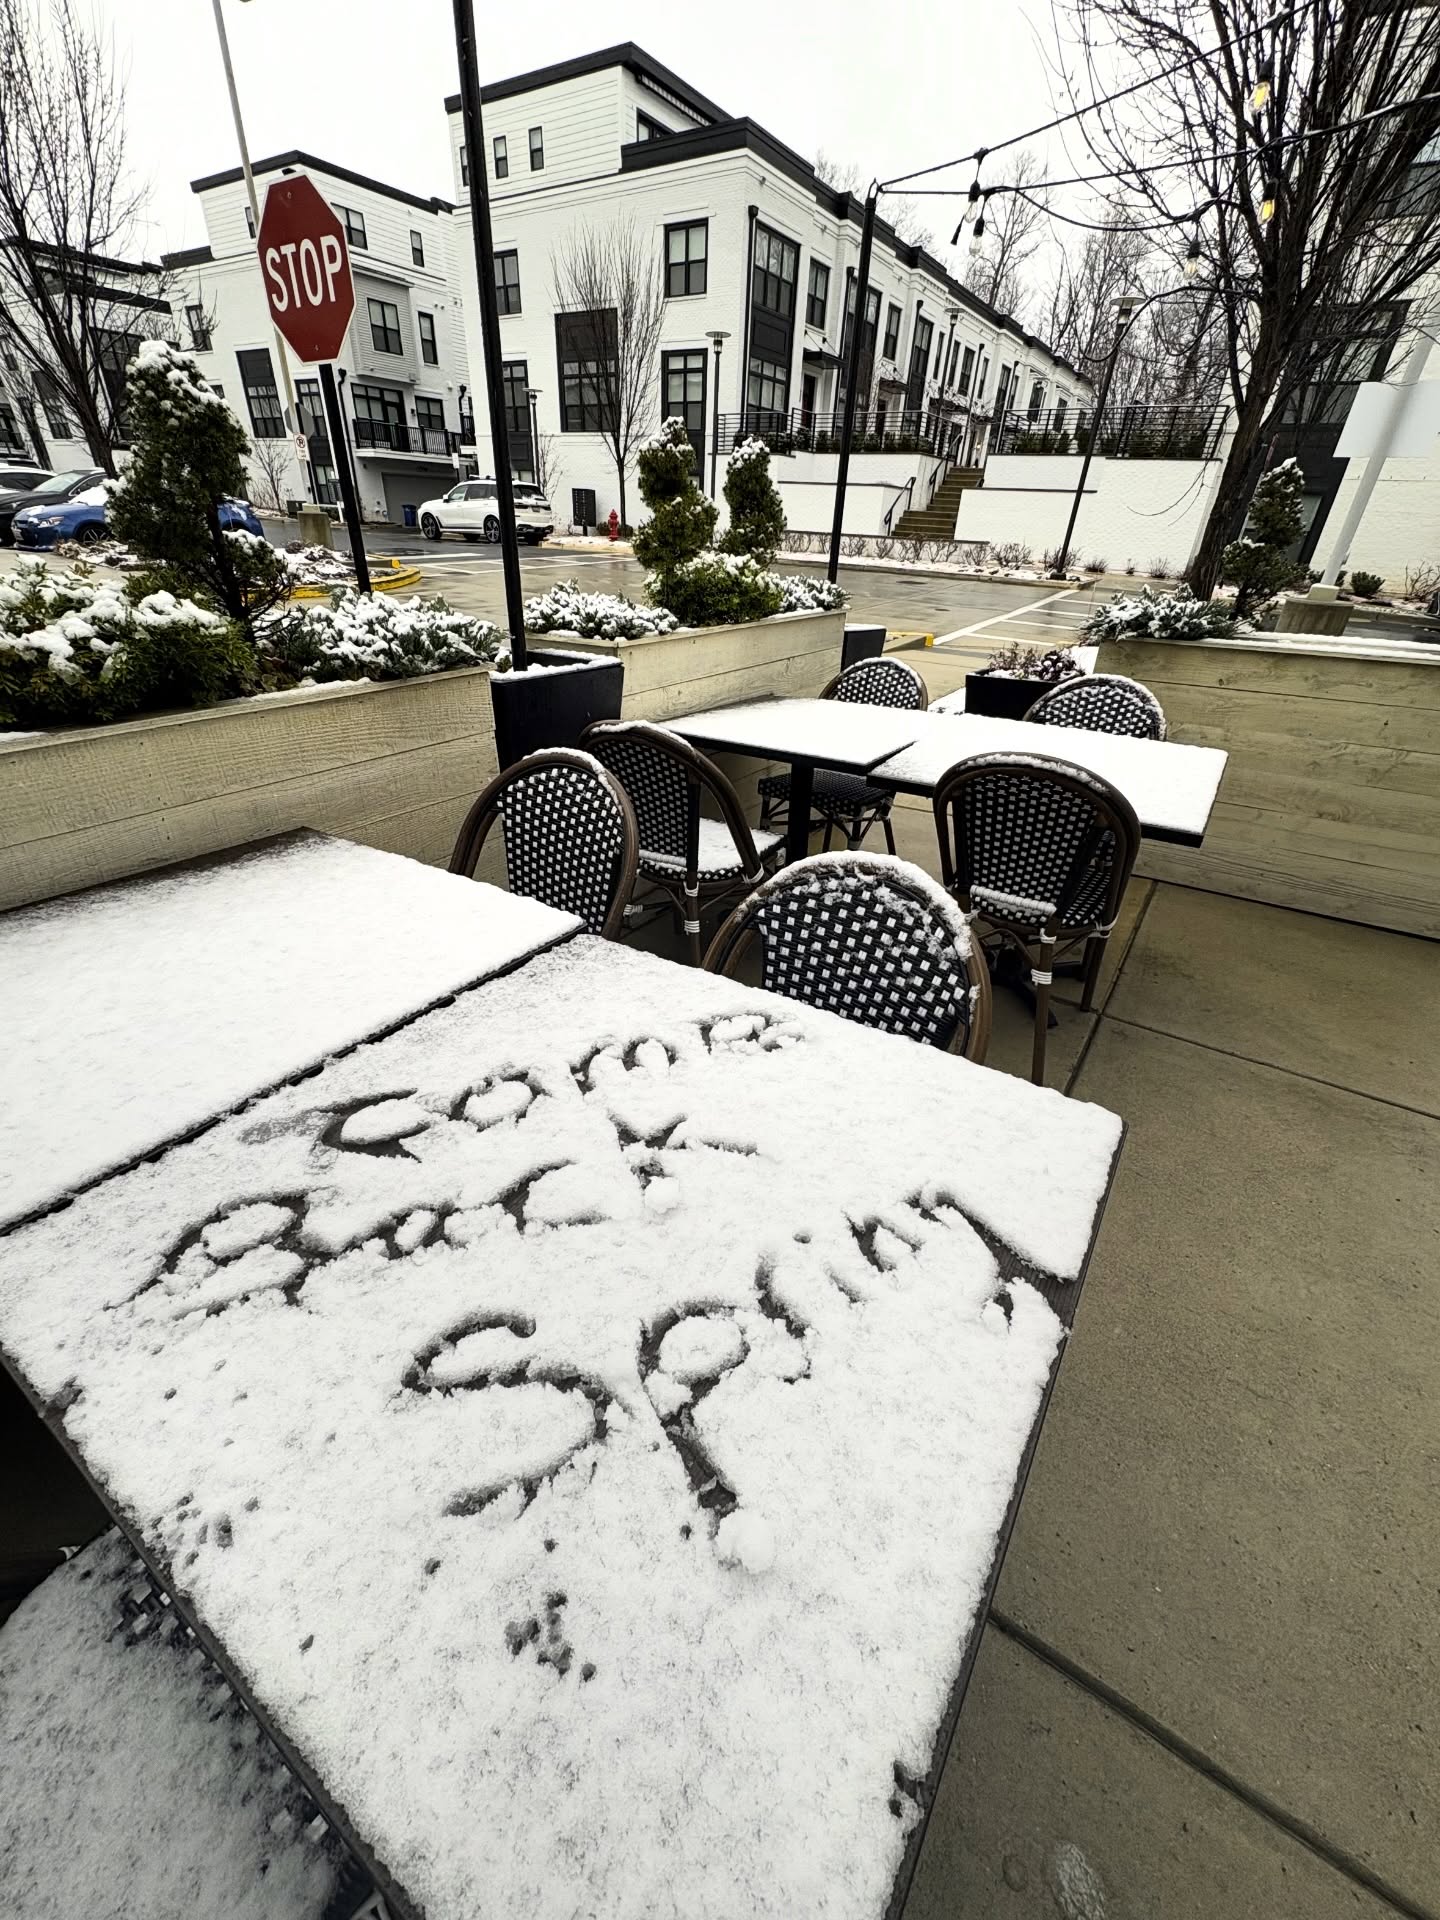 STOP
Come
Back
Spring